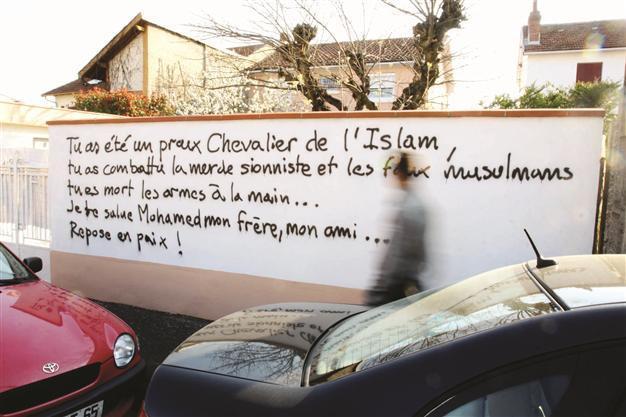 Tu as été un preux Chevalier de l'Islam,
tu as combattu la merde sioniste et les faux musulmans
tu es mort les armes à la main...
Je te salue Mohamed mon frère, mon ami...
Repose en paix !